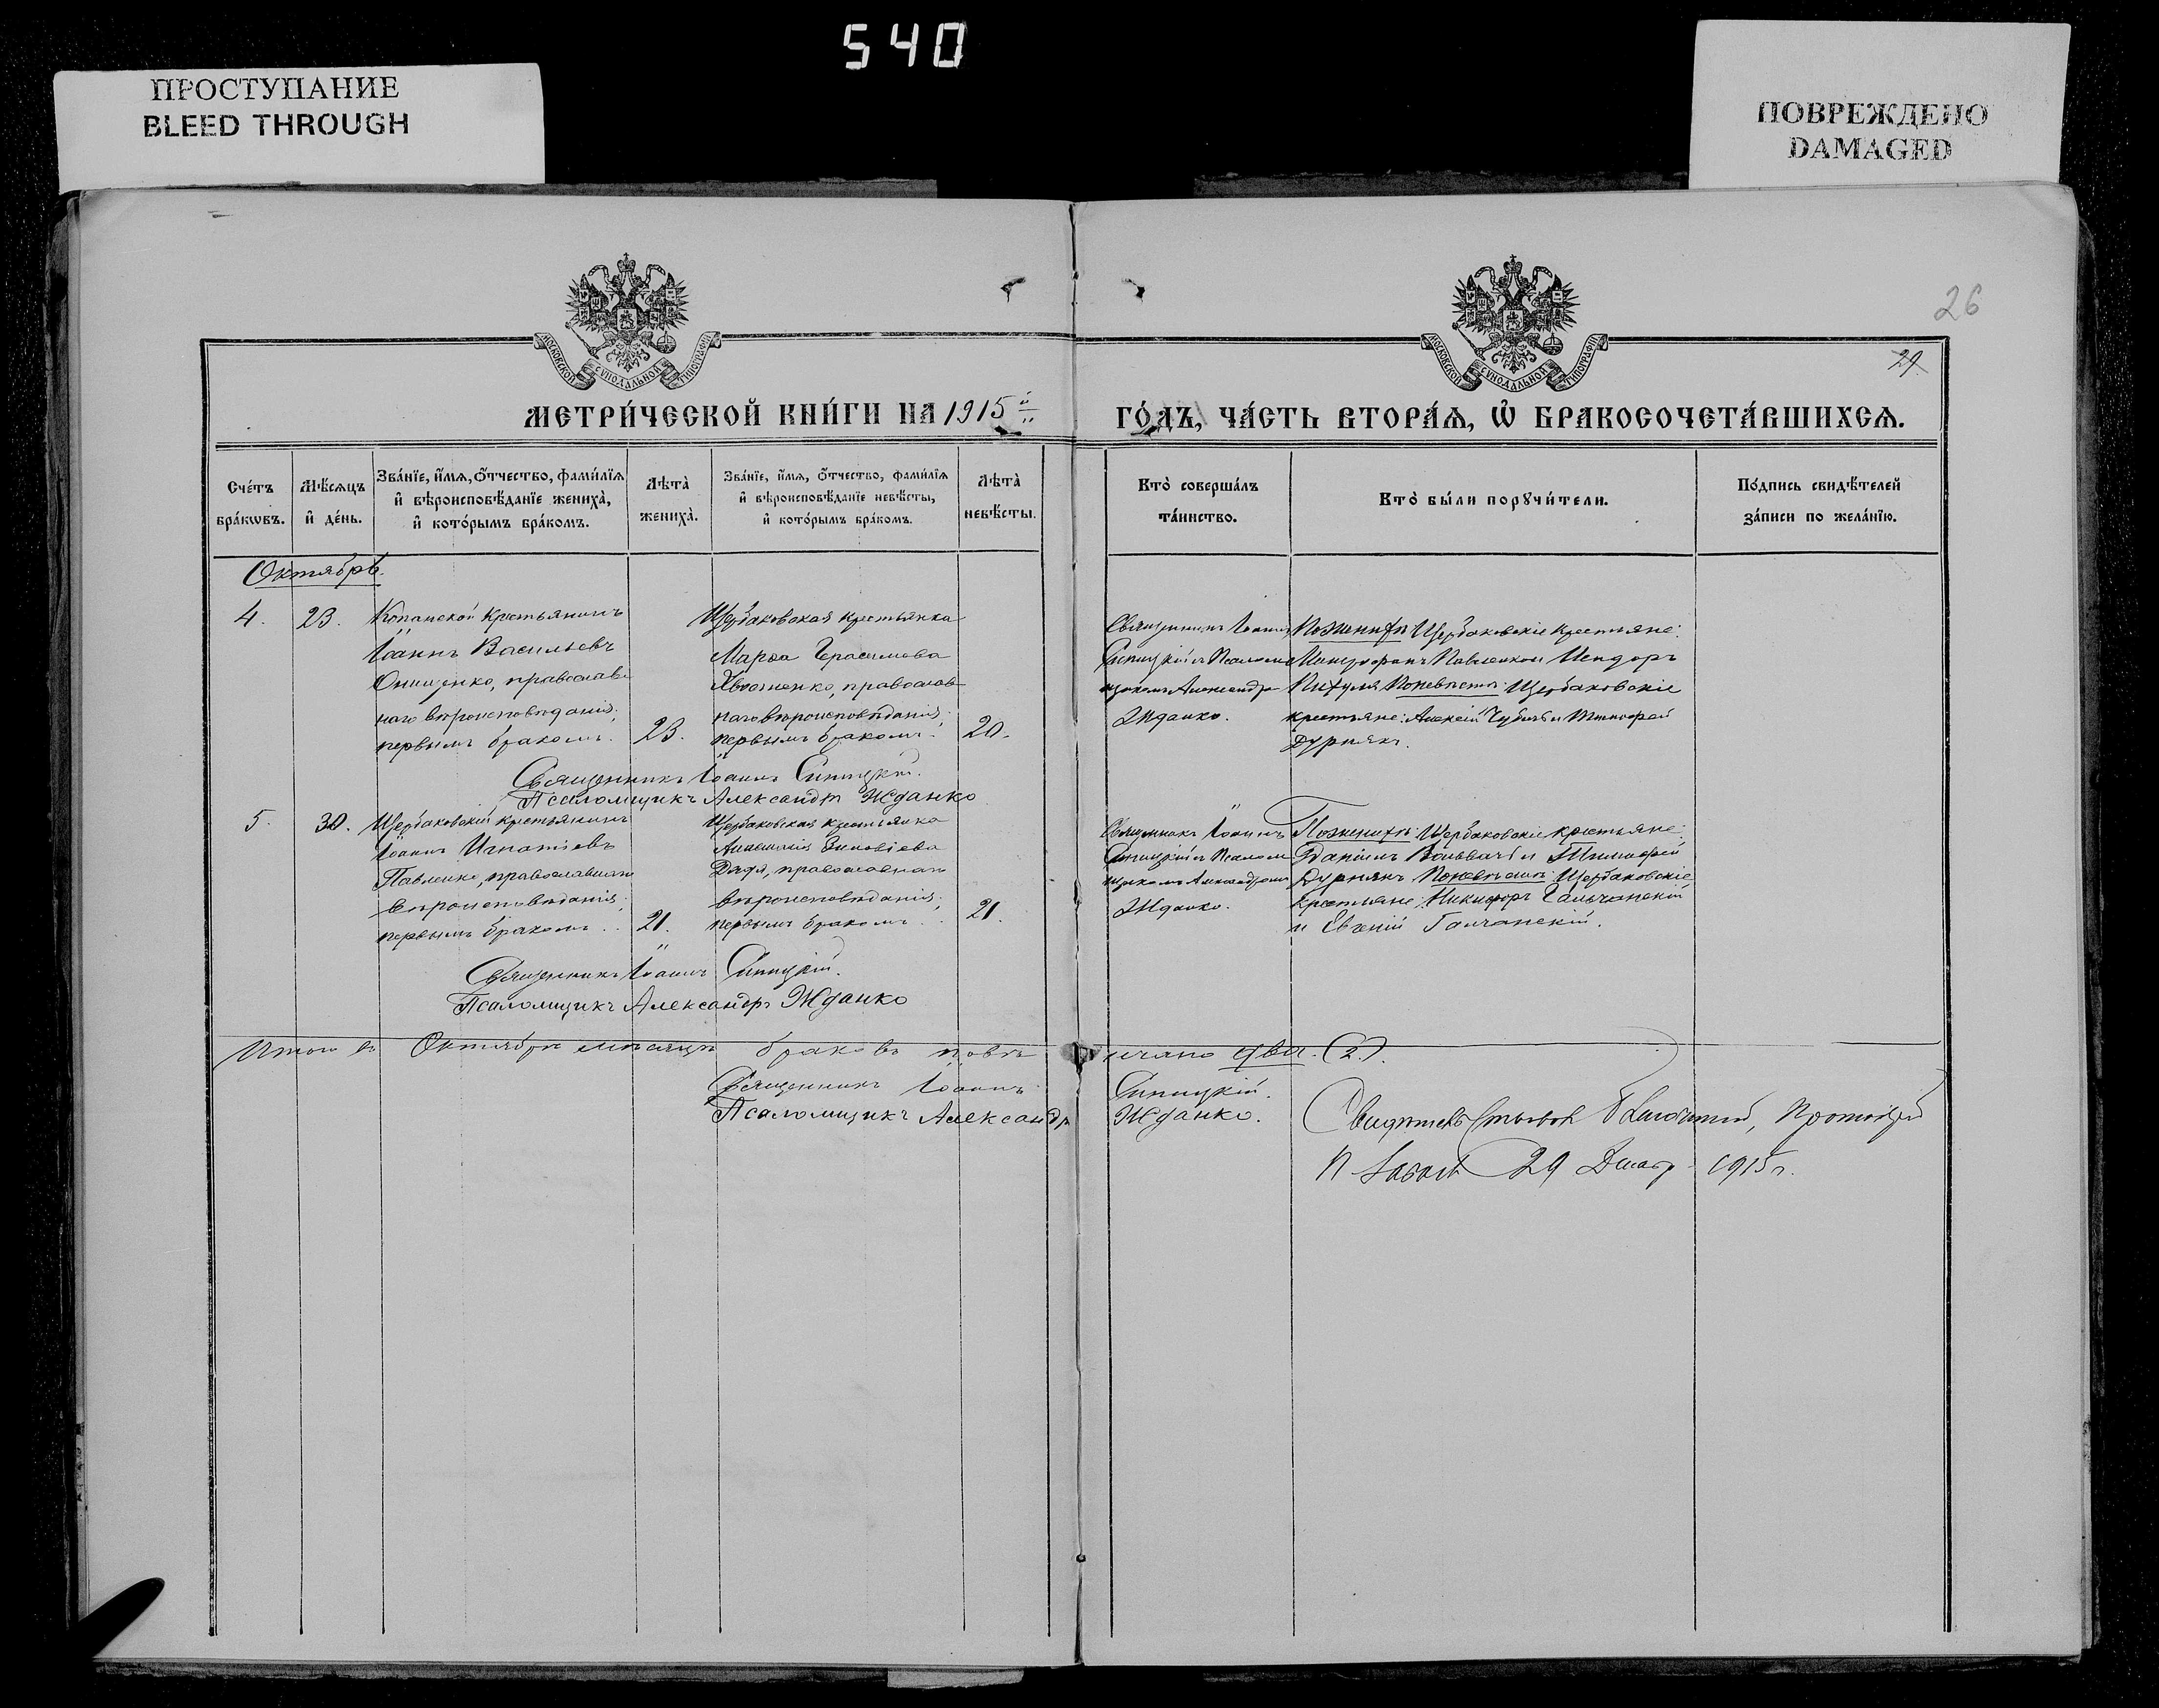 540
ПРОСТУПАНИЕ
BLEED THROUGH
ПОВРЕЖДЕНО
DAMAGED
26
29
МОСКОВСКОЙ СѴНОДАЛЬНОЙ ТИПОГРАФІИ
МОСКОВСКОЙ СѴНОДАЛЬНОЙ ТИПОГРАФІИ
МЕТРИ́ЧЕСКОЙ КНИ́ГИ НА 1915й
ГО́ДЪ, ЧА́СТЬ ВТОРА́Я, Ѡ҆ БРАКОСОЧЕТА́ВШИХСЯ.
Сче́тъ бра́кѡвъ.
Мѣ́сяцъ и҆ де́нь.
Зва́нїе, и҆́мя, ѻ҆́тчество, фами́лїя и҆ вѣроисповѣ́данїе жениха̀, и҆ кото́рымъ бра́комъ.
Лѣта̀ жениха̀.
Зва́нїе, и҆́мя, ѻ҆́тчество, фами́лїя и҆ вѣроисповѣ́данїе невѣ́сты, и҆ кото́рымъ бра́комъ.
Лѣта̀ невѣ́сты.
Кто̀ соверша́лъ та́инство.
Кто̀ бы́ли порꙋчи́тели.
По́дпись свидѣ́телей за́писи по жела́нїю.
Октябрь.
4.
23.
Копанской крестьянинъ
Іоаннъ Васильевъ
Онищенко, православ-
наго вѣроисповѣданія,
первымъ бракомъ.
23.
Щербаковская крестьянка
Марѳа Герасимова
православ-
наго вѣроисповѣданія,
первымъ бракомъ.
20.
Священникъ Іоаннъ
Синицкій и Псалом-
щикомъ Александр
Жданко.
По женихѣ: Щербаковскіе крестьяне:
Павленко и
По невѣстѣ: Щербаковскіе
крестьяне: Алексій и Тимофей
Дурнякъ.
Священникъ Іоаннъ Синицкій.
Псаломщикъ Александръ Жданко
5.
30.
Щербаковскій крестьянинъ
Іоаннъ Игнатіевъ
Павленко, православнаго
вѣроисповѣданія,
первымъ бракомъ.
21.
Щербаковская крестьянка
Анастасія Зиновіева
православнаго
вѣроисповѣданія,
первымъ бракомъ.
21.
Священникъ Іоаннъ
Синицкій и Псалом-
щикомъ Александромъ
Жданко.
По женихѣ: Щербаковскіе крестьяне:
Даніилъ и Тимофей
Дурнякъ По невѣстѣ: Щербаковскіе
крестьяне: Никифоръ Гальчанскій
и Евгеній Галчанскій.
Священникъ Іоаннъ Синицкій.
Псаломщикъ Александръ Жданко
Итого въ Октябрѣ мѣсяцѣ браковъ повѣнчано два. (2).
Священникъ Іоаннъ Синицкій.
Псаломщикъ Александръ Жданко.
29 1915 г.